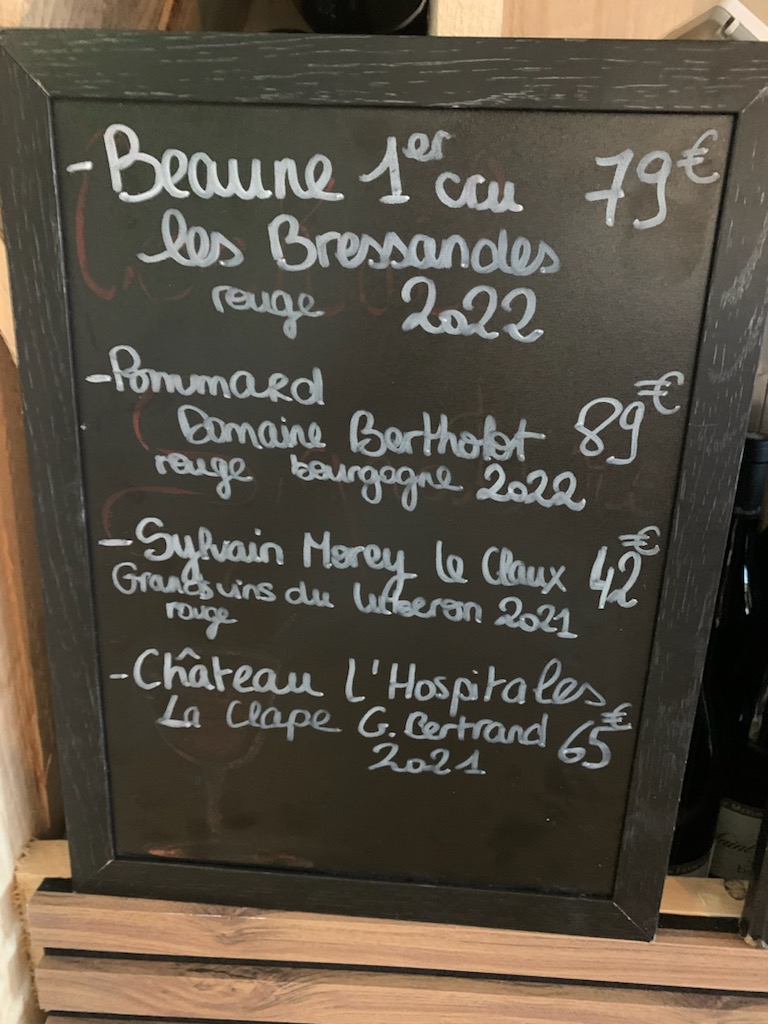 - Beaune 1er cru 79€
les Bressandes
rouge 2022
- Pommard
Domaine Bertholot 89€
rouge bourgogne 2022
- Sylvain Morey le Claux 42€
Grands vins du Luberon 2021
rouge
- Château L'Hospitales
La Clape G. Bertrand 65€
2021